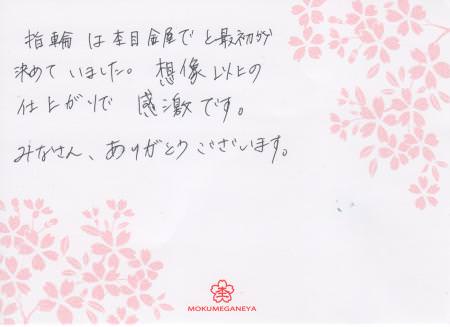 指輪は杢目金屋でと最初から
決めていました。想像以上の
仕上がりで感激です。
みなさん、ありがとうございます。
MOKUMEGANEYA